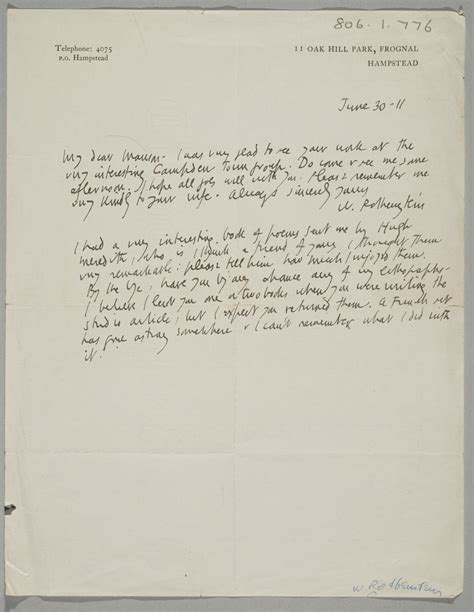 806.1.776
Telephone: 4075
P.O. Hampstead
11 OAK HILL PARK, FROGNAL
HAMPSTEAD
June 30-11
My dear Manson. I was very glad to see your work at the
very interesting Campden Town group. Do come & see me some
afternoon. I hope all goes well with you. Please remember me
very kindly to your wife. Always sincerely yours
W. Rothenstein
I had a very interesting book of poems sent me by Hugh
Meredith, who is I think a friend of yours, I thought them
very remarkable: please tell him how much I enjoyed them.
By the bye, have you by any chance any of my lithographs-
I believe I lent you one or two books when you were writing the
studio article, but I expect you returned them. A French set
has gone astray somewhere & I can't remember what I did with
it.
W Rothenstein